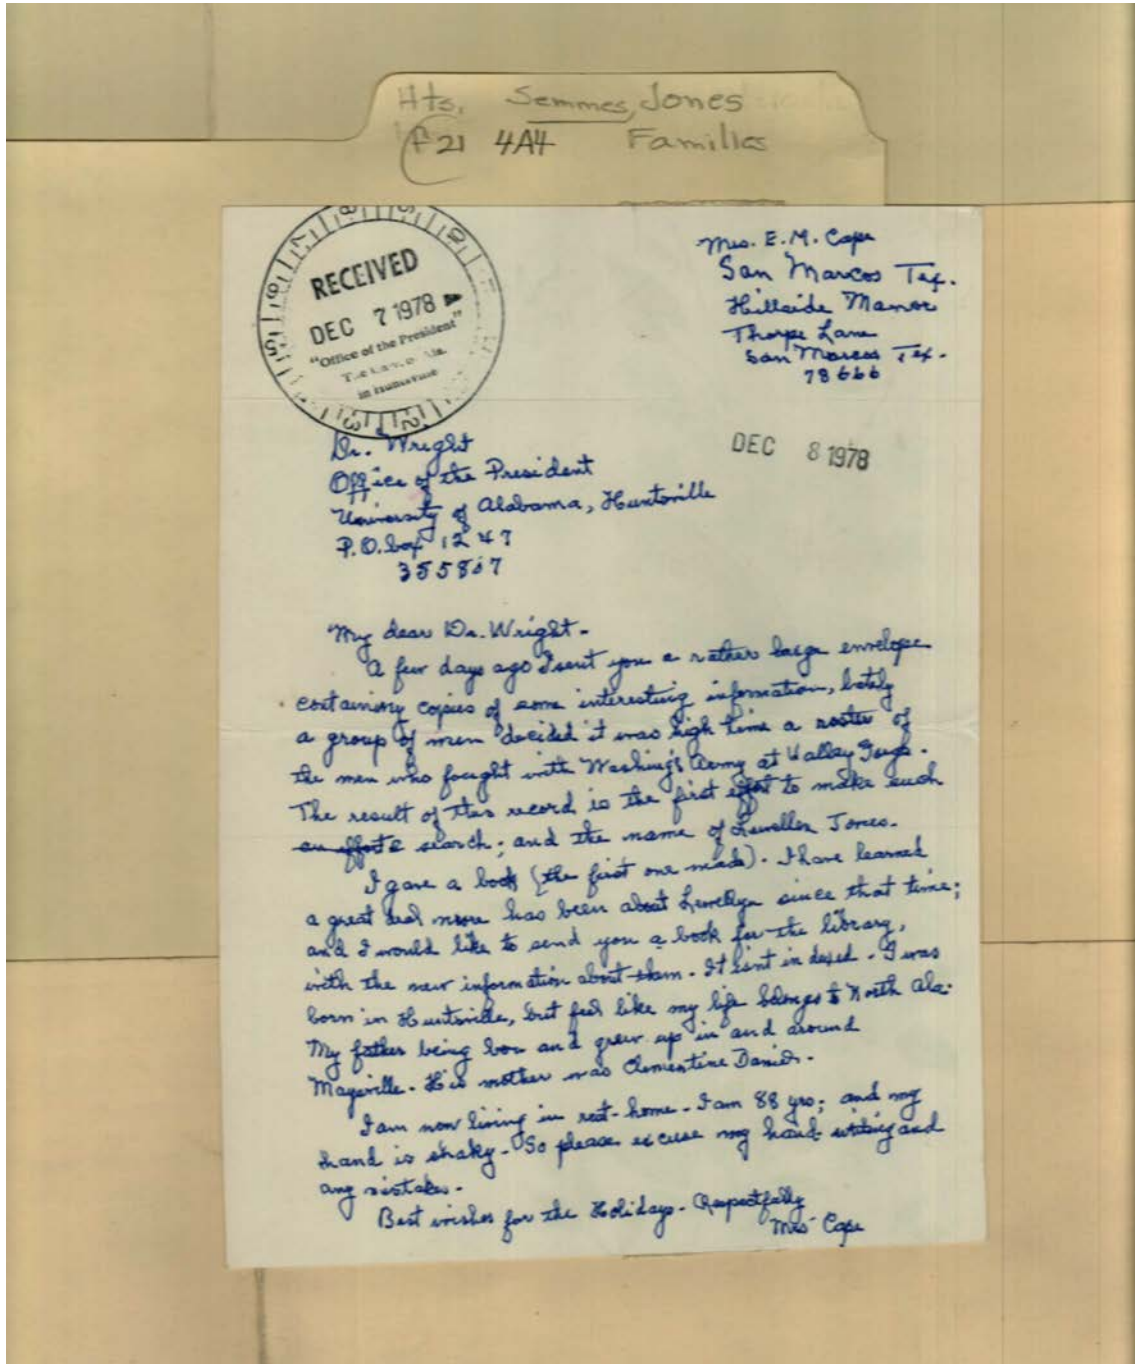 Hts. Semmes, Jones
F21 4A4 Families
RECEIVED
DEC 7 1978
"Office of the President"
in Huntsville
Mrs. E. M. Cope
San Marcos Tex.
Hillside Manor
Thorpe Lane
San Marcos Tex.
78666
DEC 8 1978
Dr. Wright
Office of the President
University of Alabama, Huntsville
P.O. box 1247
355807
My dear Dr. Wright -
A few days ago I sent you a rather large envelope
containing copies of some interesting information, lately
a group of men decided it was high time a roster of
the men who fought with Washing's Army at Valley Forge.
The result of this record is the first effort to make such
an effort search; and the name of Lewellen Jones.
I gave a book (the first one made). I have learned
a great deal more has been about Lewellyn since that time;
and I would like to send you a book for the library,
with the new information about them. It isnt indexed. I was
born in Huntsville, but feel like my life belongs to North Ala.
My father being born and grew up in and around
Maysville. His mother was Clementine Daniel.
I am now living in rest-home. I am 88 yrs; and my
hand is shaky. So please excuse my hand-writing and
any mistakes.
Best wishes for the Holidays - Respectfully
Mrs Cope